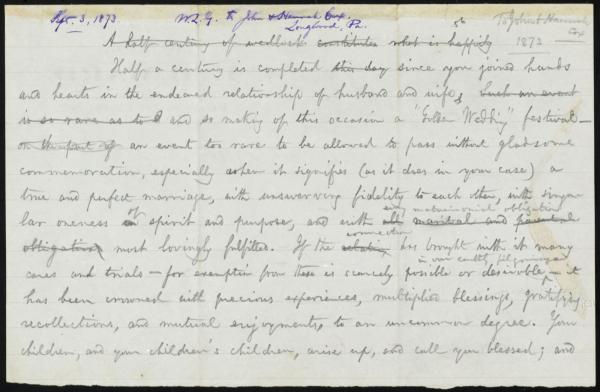 Sept. 3, 1873 W.L.G. to John & Hannah Cox. To John & Hannah
Longwood, Pa. Cox
1873
A half century of wedlock constitutes what is happily
Half a century is completed this day since you joined hands
and hearts in the endeared relationship of husband and wife, Such an event
is so rare as to b and so making of this occasion a "Golden Wedding" festival—
on the part of an event too rare to be allowed to pass without gladsome
commemoration, especially when it signifies (as it does in your case) a
true and perfect marriage, with unswerving fidelity to each other, with singu
lar oneness of spirit and purpose, and with all marital and parental
and matrimonial obligations
obligations most lovingly fulfilled. If the relation has brought with it many
connection
cares and trials—for exemption from these is scarcely possible or desirable,—it
in our earthly pilgrimage
has been crowned with precious experiences, multiplied blessings, gratifying
recollections, and mutual enjoyments, to an uncommon degree. Your
children, and your children's children, arise up, and call you blessed; and